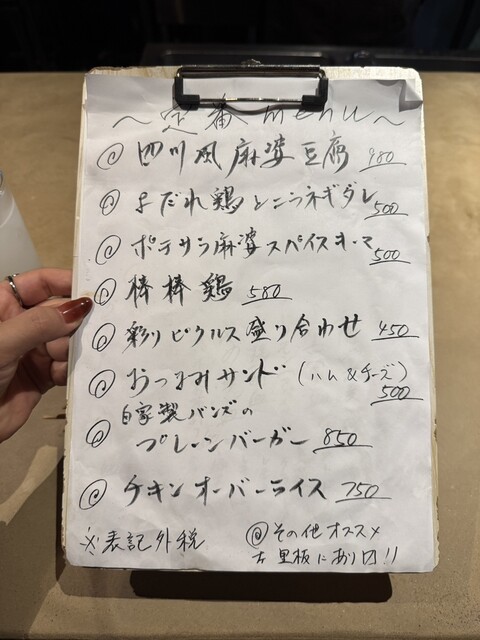 ～定番 menu～
@ 四川風麻婆豆腐 980
@ よだれ鶏とニラネギダレ 500
@ ポテサラ麻婆スパイスキーマ 500
@ 棒棒鶏 580
@ 彩りピクルス盛り合わせ 450
@ おつまみサンド (ハム&チーズ) 500
@ 自家製バンズの
プレーンバーガー 850
@ チキンオーバーライス 750
※表記外税
@ その他オススメ
黒板にあり〼!!